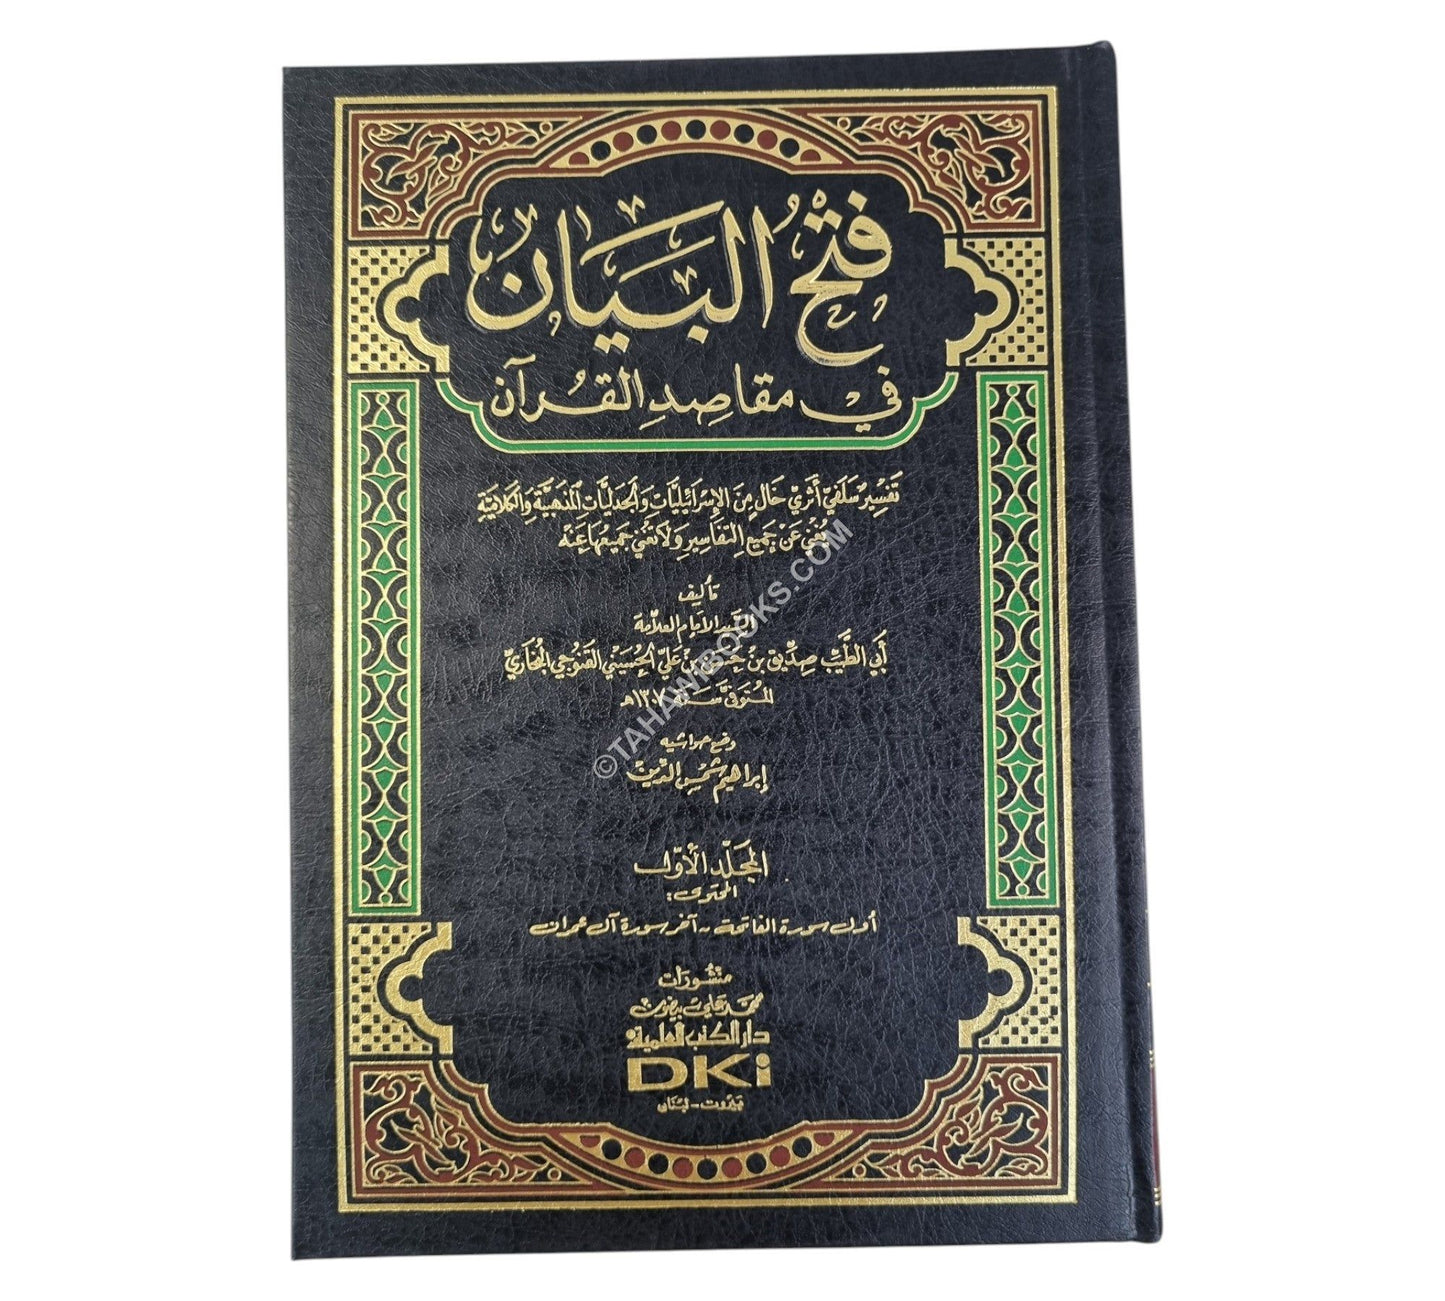 فتْحُ البَيَان
في مقاصِدِ القُرآن
تَفسِيرٌ سَلَفيٌّ أَثَريٌّ خَالٍ مِنَ الإِسْرَائيليَّاتِ وَالجَدَليَّاتِ المَذهَبيَّةِ وَالكَلَاميَّةِ
يُغْني عَنْ جَميعِ التفَاسِيرِ وَلَا تُغْني جَميعُهَا عَنْه
تأليف
السَّيد الإمام العلّامة
أبي الطَّيِّب صِدِّيق بن حسَن بن عَليّ الحُسَيني القنوجي البُخَاريّ
المتوفى سَنَة ١٣٠٧هـ
وضع حواشيه
إبراهيم شمْس الدِّين
المجَلّد الأوّل
المحتوى:
أول سورة الفاتحة - آخر سورة آل عمران
منشورات
محمّد علي بيضون
دار الكتب العلمية
DKi
بَيْرُوت - لبْنَان
©TAHAWIBOOKS.COM